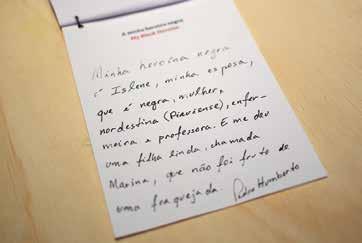 A minha heroína negra
My Black Heroine
Minha heroína negra
é Islene, minha esposa,
que é negra, mulher,
nordestina (Piauiense), enfer-
meira e professora. E me deu
uma filha linda, chamada
Marina, que não foi fruto de
uma fraquejada.
Pedro Humberto